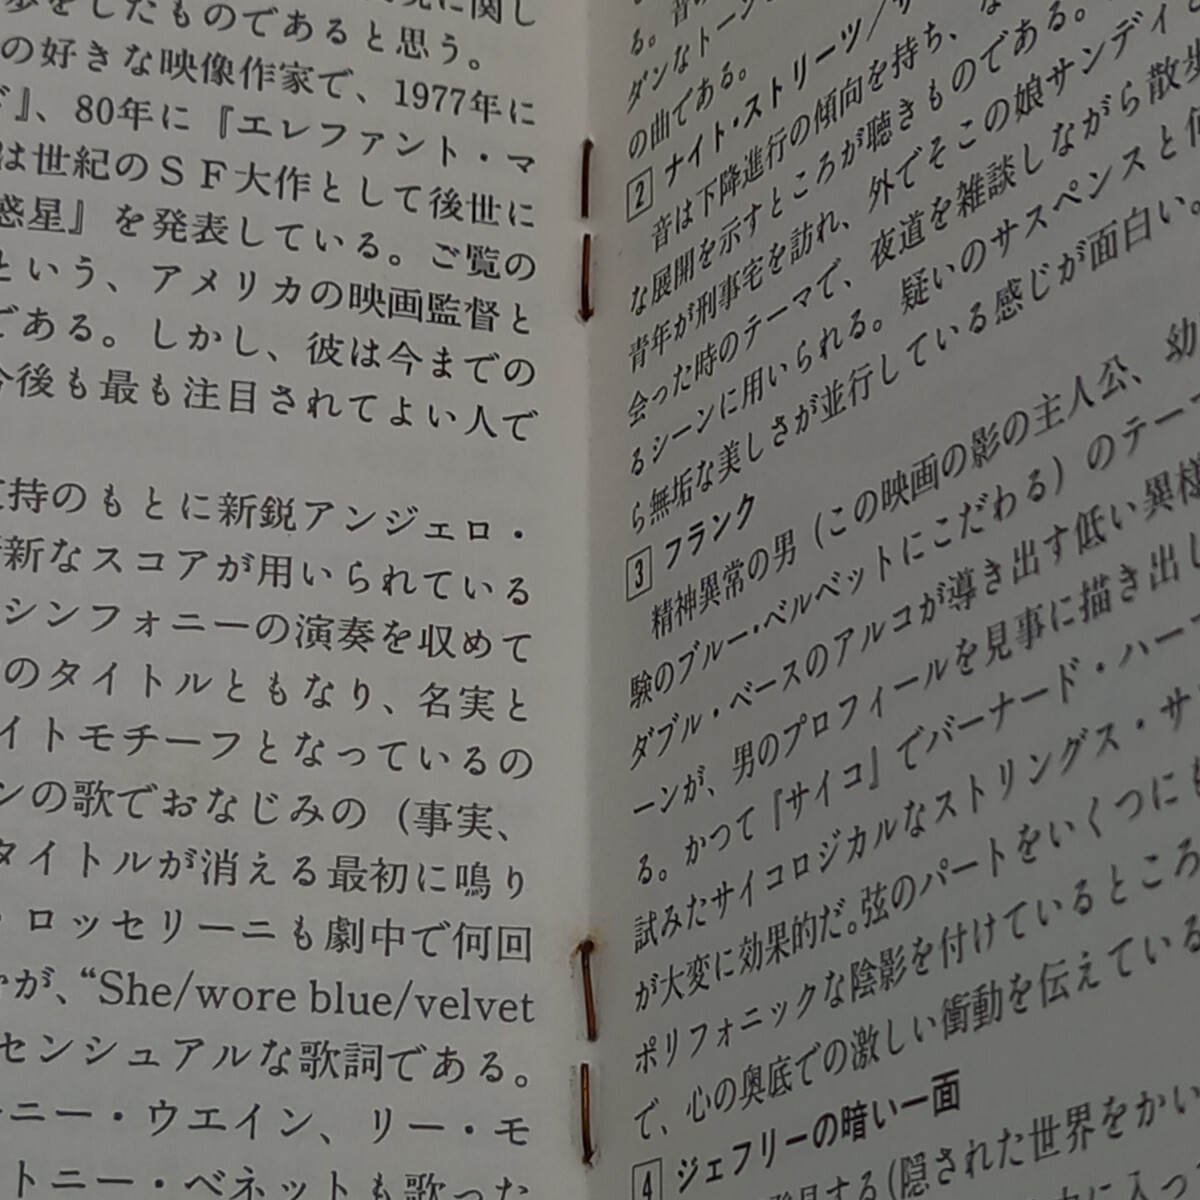 したものであると思う。
の好きな映像作家で、1977年に
』、80年に『エレファント・マ
は世紀のＳＦ大作として後世に
惑星』を発表している。ご覧の
という、アメリカの映画監督と
である。しかし、彼は今までの
今後も最も注目されてよい人で
持のもとに新鋭アンジェロ・
新なスコアが用いられている
シンフォニーの演奏を収めて
のタイトルともなり、名実と
イトモチーフとなっているの
ンの歌でおなじみの（事実、
タイトルが消える最初に鳴り
・ロッセリーニも劇中で何回
が、“She/wore blue/velvet
センシュアルな歌詞である。
ニー・ウエイン、リー・モ
トニー・ベネットも歌った
る。
ダンなトーン
の曲である。
2 ナイト・ストリーツ/サ
音は下降進行の傾向を持ち、
な展開を示すところが聴きものである。
青年が刑事宅を訪れ、外でそこの娘サンディと
会った時のテーマで、夜道を雑談しながら散歩
るシーンに用いられる。疑いのサスペンスと何
ら無垢な美しさが並行している感じが面白い。
3 フランク
精神異常の男（この映画の影の主人公、幼
験のブルー・ベルベットにこだわる）のテー
ダブル・ベースのアルコが導き出す低い異様
ーンが、男のプロフィールを見事に描き出し
る。かつて『サイコ』でバーナード・ハー
試みたサイコロジカルなストリングス・サ
が大変に効果的だ。弦のパートをいくつにも
ポリフォニックな陰影を付けているところ
で、心の奥底での激しい衝動を伝えている
4 ジェフリーの暗い一面
する（隠された世界をかい